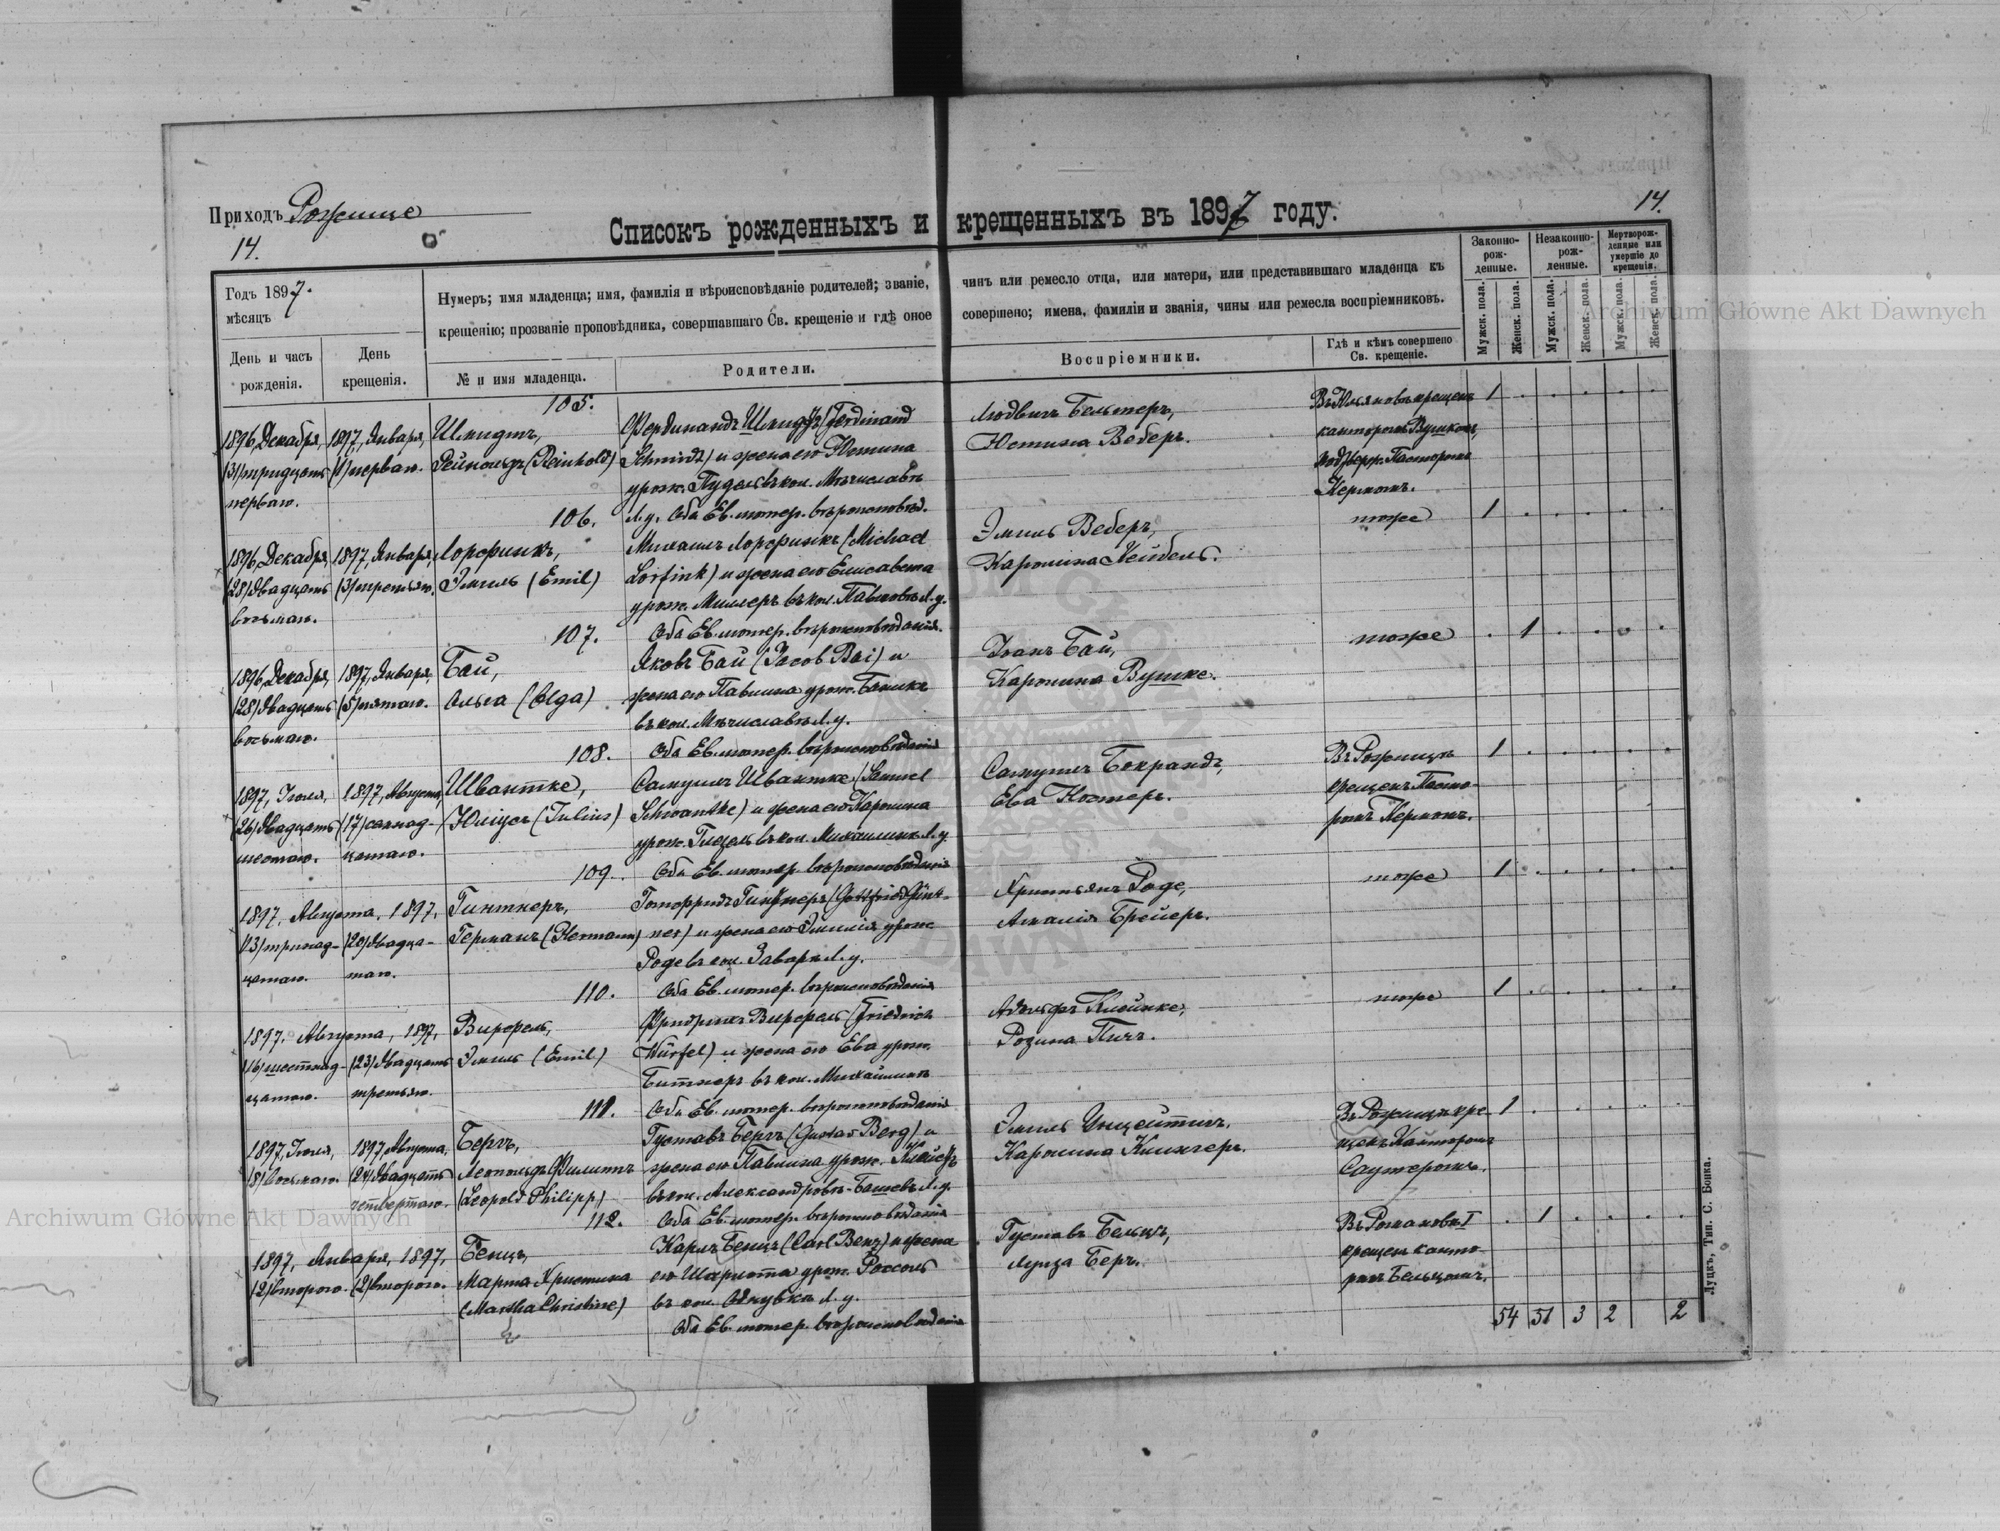 Приходъ Рожище
14.
14.
Списокъ рожденныхъ и крещенныхъ въ 1897 году.
Годъ 1897.
мѣсяцъ
День и часъ
рожденія.
День
крещенія.
Нумеръ; имя младенца; имя, фамилія и вѣроисповѣданіе родителей; званіе,
крещенію; прозваніе проповѣдника, совершавшаго Св. крещеніе и гдѣ оное
№ и имя младенца.
Родители.
чинъ или ремесло отца, или матери, или представившаго младенца къ
совершено; имена, фамиліи и званія, чины или ремесла воспріемниковъ.
Воспріемники.
Гдѣ и кѣмъ совершено
Св. крещеніе.
Законно-
рож-
денные.
Незаконно-
рож-
денные.
Мертворож-
денные или
умершіе до
крещенія.
Мужск. пола.
Женск. пола.
Мужск. пола.
Женск. пола.
Мужск. пола.
Женск. пола.
105.
1896, Декабря,
(31) тридцать
перваго.
1897, Января,
(1) перваго.
Шмидтъ,
Рейнольдъ (Reinhold)
Фердинандъ Шмидтъ (Ferdinand
Schmidt) и жена его Юстина
урож. Пудель въ кол. Мѣчиславкѣ
Л. у. Оба Ев. лютер. вѣроисповѣд.
Людвигъ Бельтеръ,
Юстина Веберъ.
крещенъ
канторомъ Вушкомъ,
подтверж. Пасторомъ
Кермомъ.
1
106.
1896, Декабря,
(28) двадцать
восьмаго.
1897, Января,
(3) третьяго.
Лорфинкъ,
Эмиль (Emil)
Михаилъ Лорфинкъ (Michael
Lorfink) и жена его Елисавета
урож. Миллеръ въ кол. Павловкѣ Л. у.
Оба Ев. лютер. вѣроисповѣданія.
Эмиль Веберъ,
Каролина Лейбель.
тоже
1
107.
1896, Декабря,
(28) двадцать
восьмаго.
1897, Января,
(5) пятаго.
Бай,
Ольга (Olga)
Яковъ Бай (Jacob Bai) и
жена его Павлина урож.
въ кол. Мѣчиславкѣ Л. у.
Оба Ев. лютер. вѣроисповѣданія
Іоанъ Бай,
Каролина Вушке.
тоже
1
108.
1897, Іюля,
(26) двадцать
шестаго.
1897, Августа,
(17) семнад-
цатаго.
Швантке,
Юліусъ (Julius)
Самуилъ Швантке (Samuel
Schwantke) и жена его Каролина
урож. въ кол. Михайлинкѣ Л. у.
Оба Ев. лютер. вѣроисповѣданія
Самуилъ Бокрандъ,
Ева Костеръ.
Въ Рожищѣ
крещенъ Пасто-
ромъ Кермомъ.
1
109.
1897, Августа,
(13) тринад-
цатаго.
1897,
(20) двадца-
таго.
Гинтнеръ,
Германъ (Hermann)
Готфридъ Гинтнеръ (Gottfried Günt-
ner) и жена его Эмилія урож.
Роде въ кол. Л. у.
Оба Ев. лютер. вѣроисповѣданія
Христьянъ Роде,
Амалія Брейеръ.
тоже
1
110.
1897, Августа,
(16) шестнад-
цатаго.
1897,
(23) двадцать
третьяго.
Вирфель,
Эмиль (Emil)
Фридрихъ Вирфель (Friedrich
Würfel) и жена его Ева урож.
Битнеръ въ кол. Михайлинкѣ
Оба Ев. лютер. вѣроисповѣданія
Адольфъ Клейнке,
Розина Пичъ.
тоже
1
111.
1897, Іюля,
(8) восьмаго.
1897, Августа,
(24) двадцать
четвертаго.
Бергъ,
Леопольдъ Филиппъ
(Leopold Philipp)
Густавъ Бергъ (Gustav Berg) и
жена его Павлина урож.
въ кол. Александровкѣ-Башевѣ Л. у.
Оба Ев. лютер. вѣроисповѣданія
Эмиль
Каролина Клингеръ.
Въ Рожищѣ кре-
щенъ Канторомъ
Саутеромъ.
1
112.
1897, Января,
(2) второго.
1897,
(2) второго.
Бенцъ,
Марта Христина
(Martha Christine)
Карлъ Бенцъ (Carl Benz) и жена
его Шарлотта урож. Россоль
въ кол. Л. у.
Оба Ев. лютер. вѣроисповѣданія
Густавъ Бельцъ,
Луиза Беръ.
Въ Романовкѣ I
крещенъ канто-
ромъ Бельцомъ.
1
54 51 3 2 2
Луцкъ, Тип. С. Бонка.
Archiwum Główne Akt Dawnych
Archiwum Główne Akt Dawnych